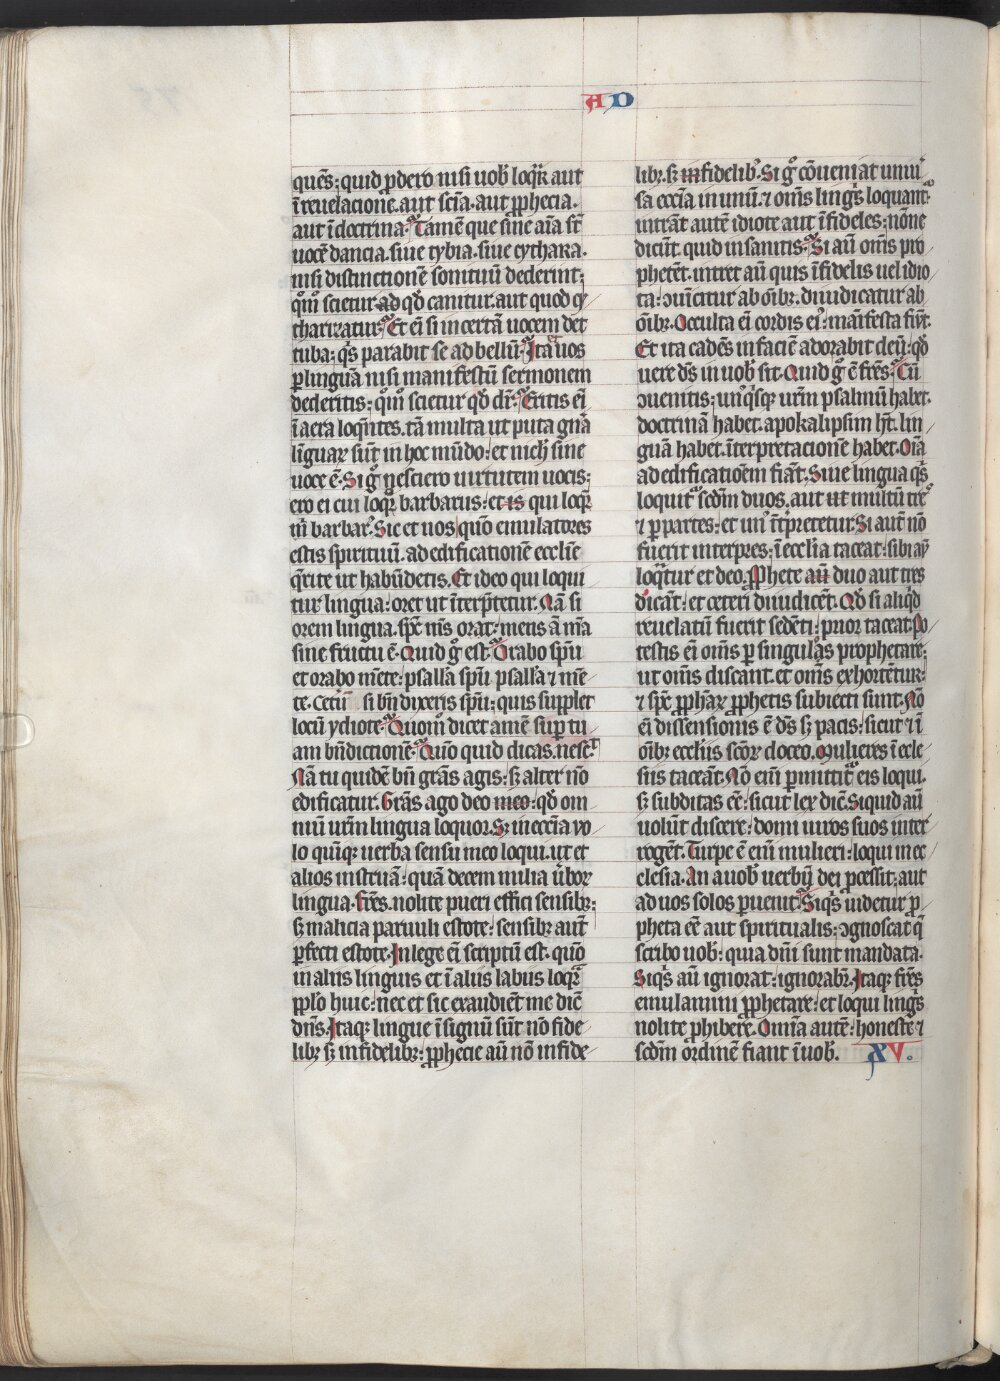 AD
quēs: quid ꝓdero nisi uob̄ loq̄r aut
ī reuelacione. aut scīa. aut ꝓphecia.
aut ī doctrina. Tamē que sine aīa st̄
uocē dancia. siue tybia. siue cythara.
nisi distinctionē sonituū dederint:
qūo scietur ad qd̄ canitur. aut quod cy
tharizatur. Et eī si incertā uocem det
tuba: qͥs parabit se ad bellū. Ita uos
ꝑ linguā nisi manifestū sermonem
dederitis: qūo scietur qd̄ dr̄. Eritis eī
ī aera loqn̄tes. tā multa ut puta gnā
līguaꝝ sūt in hoc mūdo: et nich̄ sine
uoce ē. Si gͦ nesciero uirtutem uocis:
ero ei cui loqͦr barbarus: et is qui loqͥr
m̄ barbarꝰ. Sic et uos quō emulatores
estis spirituū. ad edificationē eccl̄ie
q̄rite ut habūdetis. Et ideo qui loqui
tur lingua: oret ut īterp̄tetur. Nā si
orem lingua. spc̄ ms̄ orat: mens ā m̄a
sine fructu ē. Quid gͦ est. Orabo spū
et orabo mēte: psallā spū psallā ⁊ mē
te. Cetū si bn̄dixeris spū: quis supplet
locū ydiote. Quom̄ dicet amē suꝑ tu
am bn̄dictionē. Quō quid dicas. nescͭ
Nā tu quidē bn̄ grās agis: sꝫ alter nō
edificatur. Grās ago deo meo: qd̄ om
niū urm̄ lingua loquor. Sꝫ in eccīa vo
lo quīqꝫ uerba sensu meo loqui. ut et
alios instruā: quā decem milia ūboꝝ
lingua. Fres̄. nolite pueri effici sensibꝫ:
sꝫ malicia paruuli estote: sensibꝫ aut̄
ꝑfecti estote. In lege eī scriptū est. quō
in aliis linguis et ī aliis labiis loqͦr
ppl̄o huic: nec et sic exaudiēt me dic̄
dn̄s. Itaqꝫ lingue ī signū sūt nō fide
libꝫ sꝫ infidelibꝫ: ꝓphecie aū nō infide
libꝫ. sꝫ fidelibꝰ. Si gͦ cōueniat uniuͬ
sa eccīa in unū. ⁊ oms̄ lingͥs loquantͬ
intrāt autē idiote aut īfideles: nōne
dicūt. quid insanitis. Si aū oms̄ pro
phetēt. intret aū quis īfidelis uel idio
ta: ↄuīcitur ab oībꝫ. diiudicatur ab
oībꝫ. Occulta eī cordis eiꝰ: manīfesta fiūt.
Et ita cadēs in faciē adorabit deū: qd̄
uere ds̄ in uob̄ sit. Quid gͦ ē fres̄. Cū
ↄuenitis: unꝰqͥsqꝫ urm̄ psalmū habet.
doctrinā habet. apokalipsim ht̄. lin
guā habet. īterpretacionē habet. Oīa
ad edificatioēm fiāt. Siue lingua qͥs
loquitͬ scdm̄ duos. aut ut multū tre
⁊ ꝑ partes: et unꝰ īt̄pretetur. Si aut̄ nō
fuerit interpres: ī eccl̄ia taceat: sibi aū
loqͣtur et deo. Prophete aū duo aut tres
dicāt: et ceteri diiudicēt. Qd̄ si aliqͥd
reuelatū fuerit sedēti: prior taceat. Po
testis eī oms̄ ꝑ singulos prophetare:
ut oms̄ discant. et oms̄ exhortētur:
⁊ spc̄ ꝓphāꝝ ꝓphetis subiecti sunt. Nō
eī dissensionis ē ds̄ sꝫ pacis: sicut ⁊ ī
oībꝫ eccl̄iis scōꝝ doceo. Mulieres ī ecle
siis taceāt. Nō eni ꝑmittitͬ eis loqui.
sꝫ subditas eē: sicut lex dic̄. Siquid aū
uolūt discere: domi uiros suos inter
rogēt. Turpe ē eni mulieri: loqui in ec
clesia. An a uob̄ uerbū dei ꝓcessit: aut
ad uos solos ꝑuenit. Siqͥs uidetur ꝓ
pheta eē aut spiritualis: ↄgnoscat q̄
scribo uob̄: quia dn̄i sunt mandata.
Siqͥs aū ignorat: ignorabr̄. Itaqꝫ fres̄
emulamini ꝓphetare: et loqui lingͥs
nolite ꝓhibere. Omnia autē: honeste ⁊
scdm̄ ordinē fiant ī uob̄.
XV.